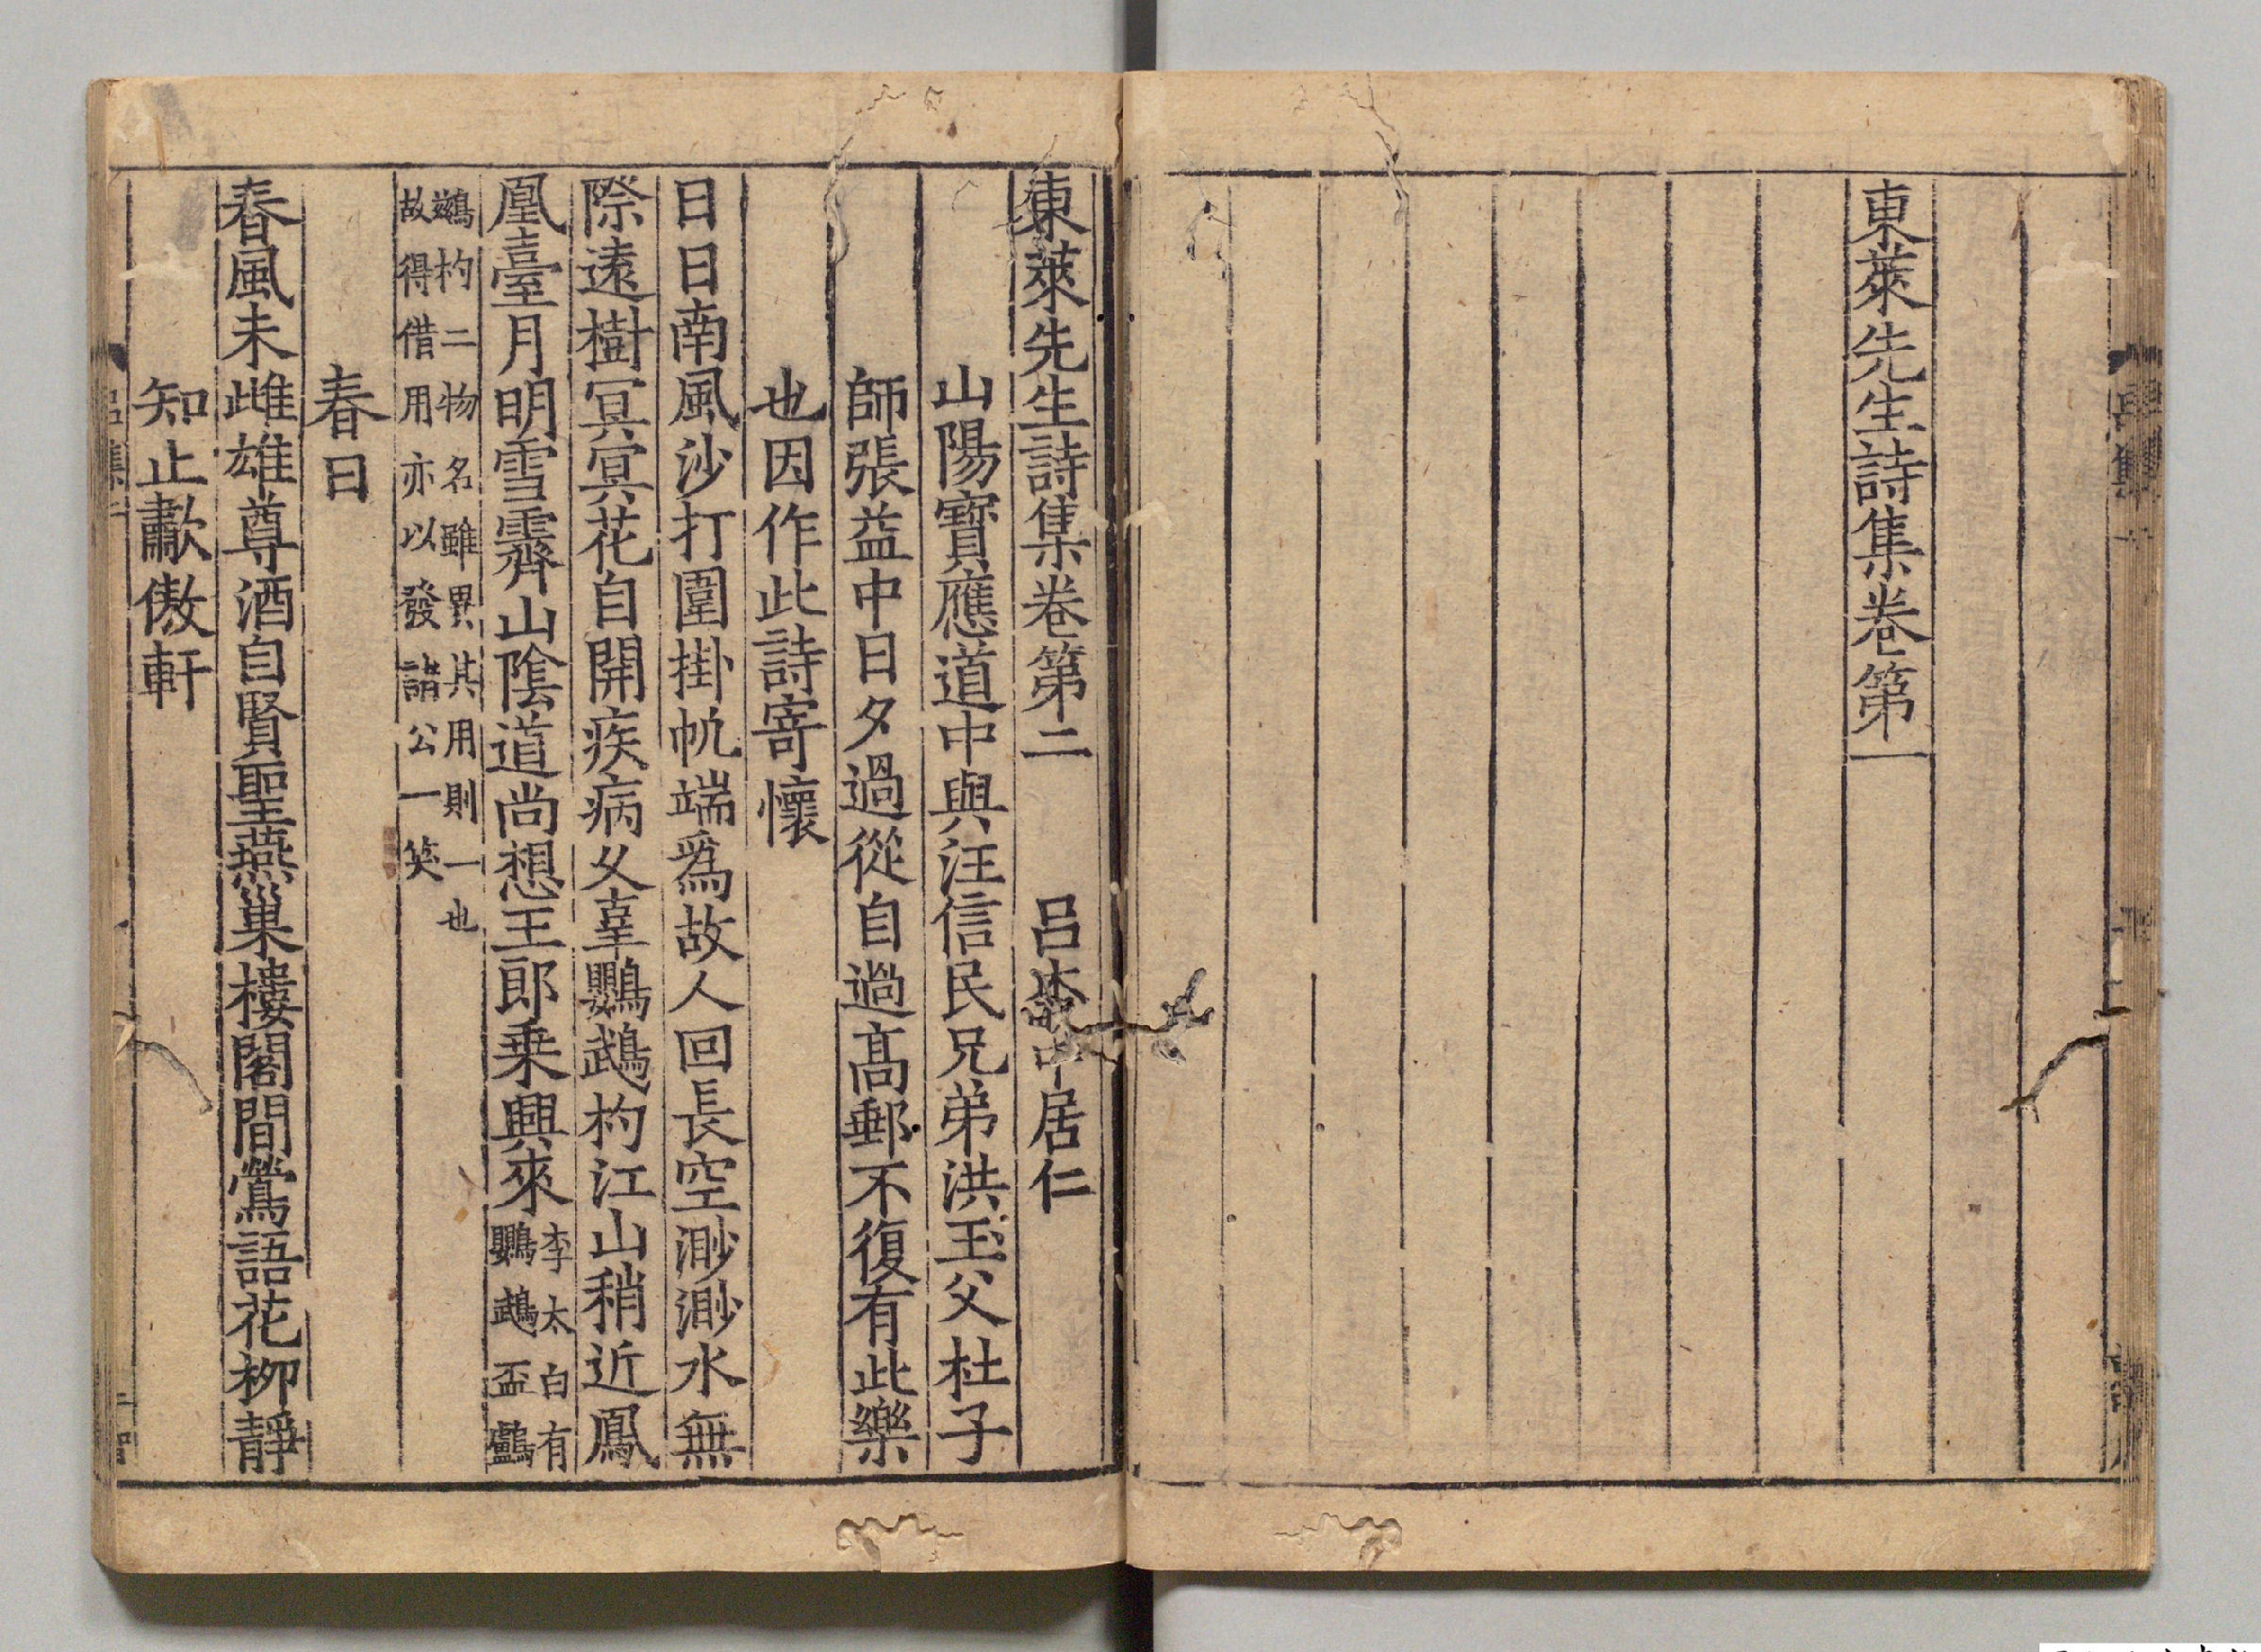 東萊先生詩集卷第一
東萊先生詩集卷第二 呂本中居仁
山陽寶應道中與汪信民兄弟洪玉父杜子
師張益中日夕過從自過髙郵不復有此樂
也因作此詩寄懷
日日南風沙打圍掛帆端爲故人回長空渺渺水無
際遠樹冥冥花自開疾病乆辜鸚鵡杓江山稍近鳳
凰臺月明雪霽山隂道尚想王郎乗興來李太白有
鸚鵡盃鸕
鷀杓二物名雖異其用則一也
故得借用亦以發諸公一笑
春日
春風未雌雄尊酒自賢聖燕巢樓閣間鶯語花栁靜
知止歗傲軒